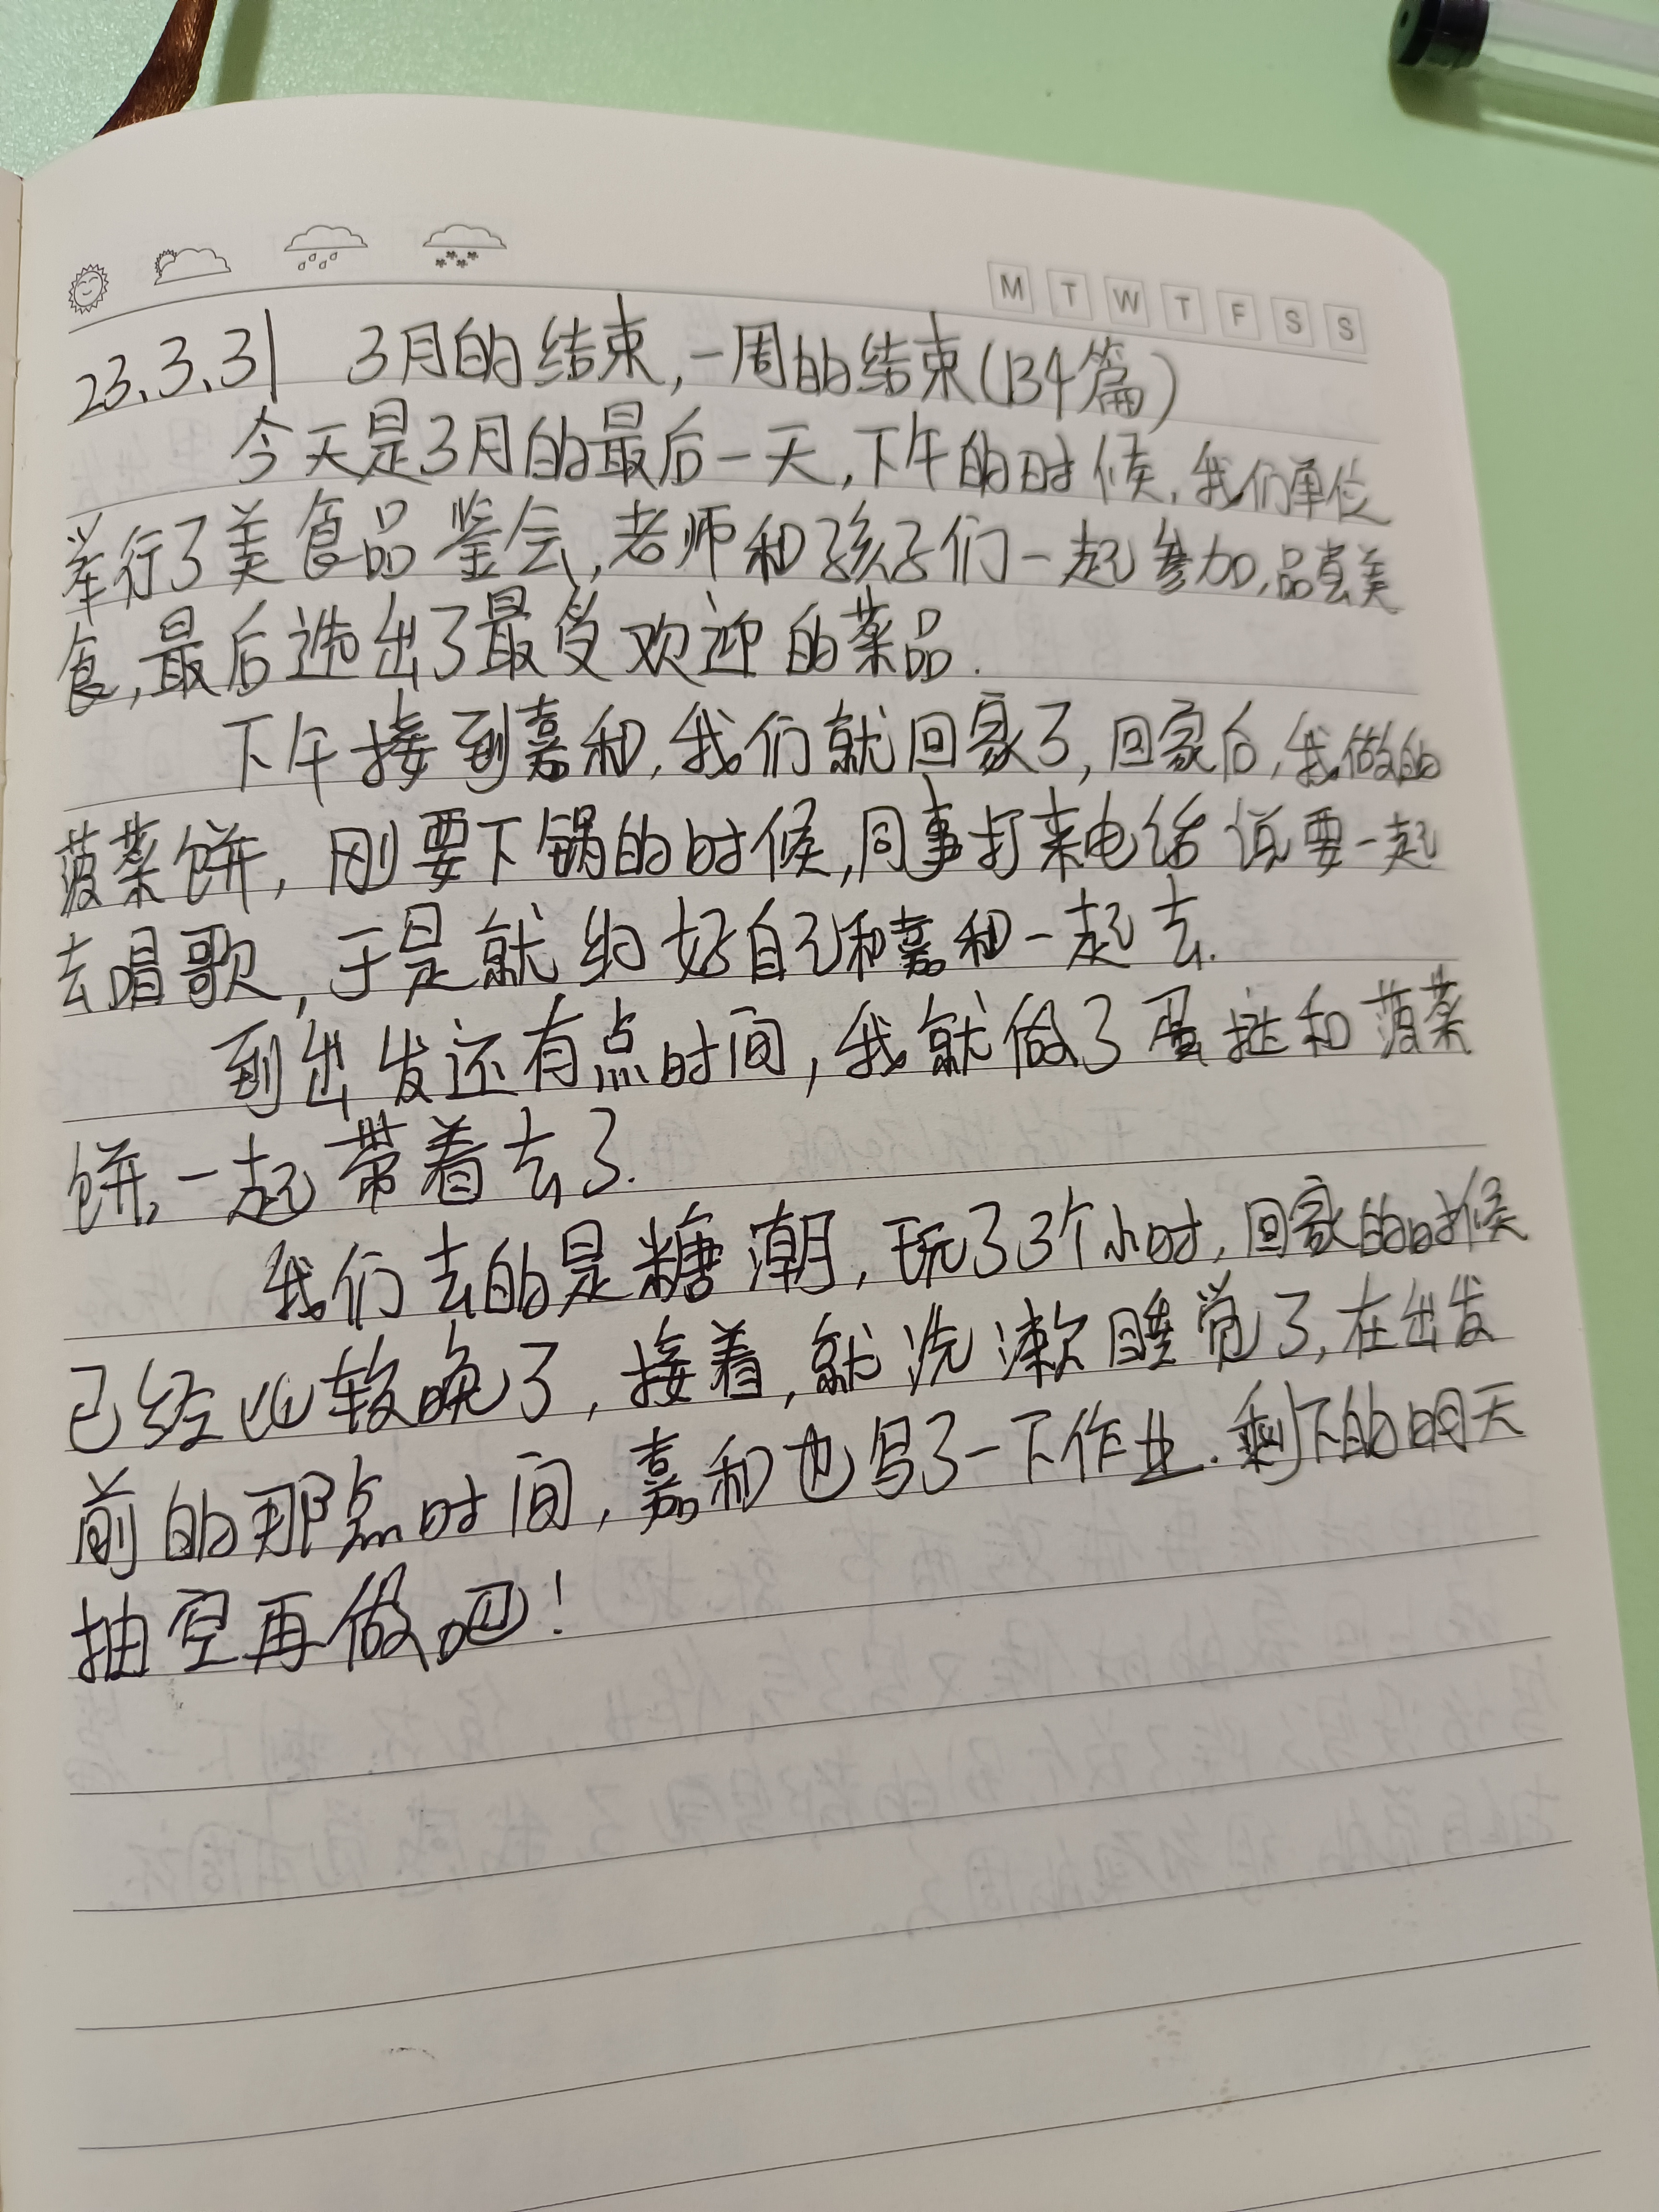 M T W T F S S
23.3.31 3月的结束,一周的结束(134篇)
今天是3月的最后一天,下午的时候,我们单位
举行了美食品鉴会,老师和孩子们一起参加,品尝美
食,最后选出了最受欢迎的菜品.
下午接到嘉和,我们就回家了,回家后,我做的
菠菜饼,刚要下锅的时候,同事打来电话说要一起
去唱歌,于是就约好自己和嘉和一起去.
到出发还有点时间,我就做了蛋挞和菠菜
饼,一起带着去了.
我们去的是糖潮,玩了3个小时,回家的时候
已经比较晚了,接着,就洗漱睡觉了,在出发
前的那点时间,嘉和也写了一下作业.剩下的明天
抽空再做吧!